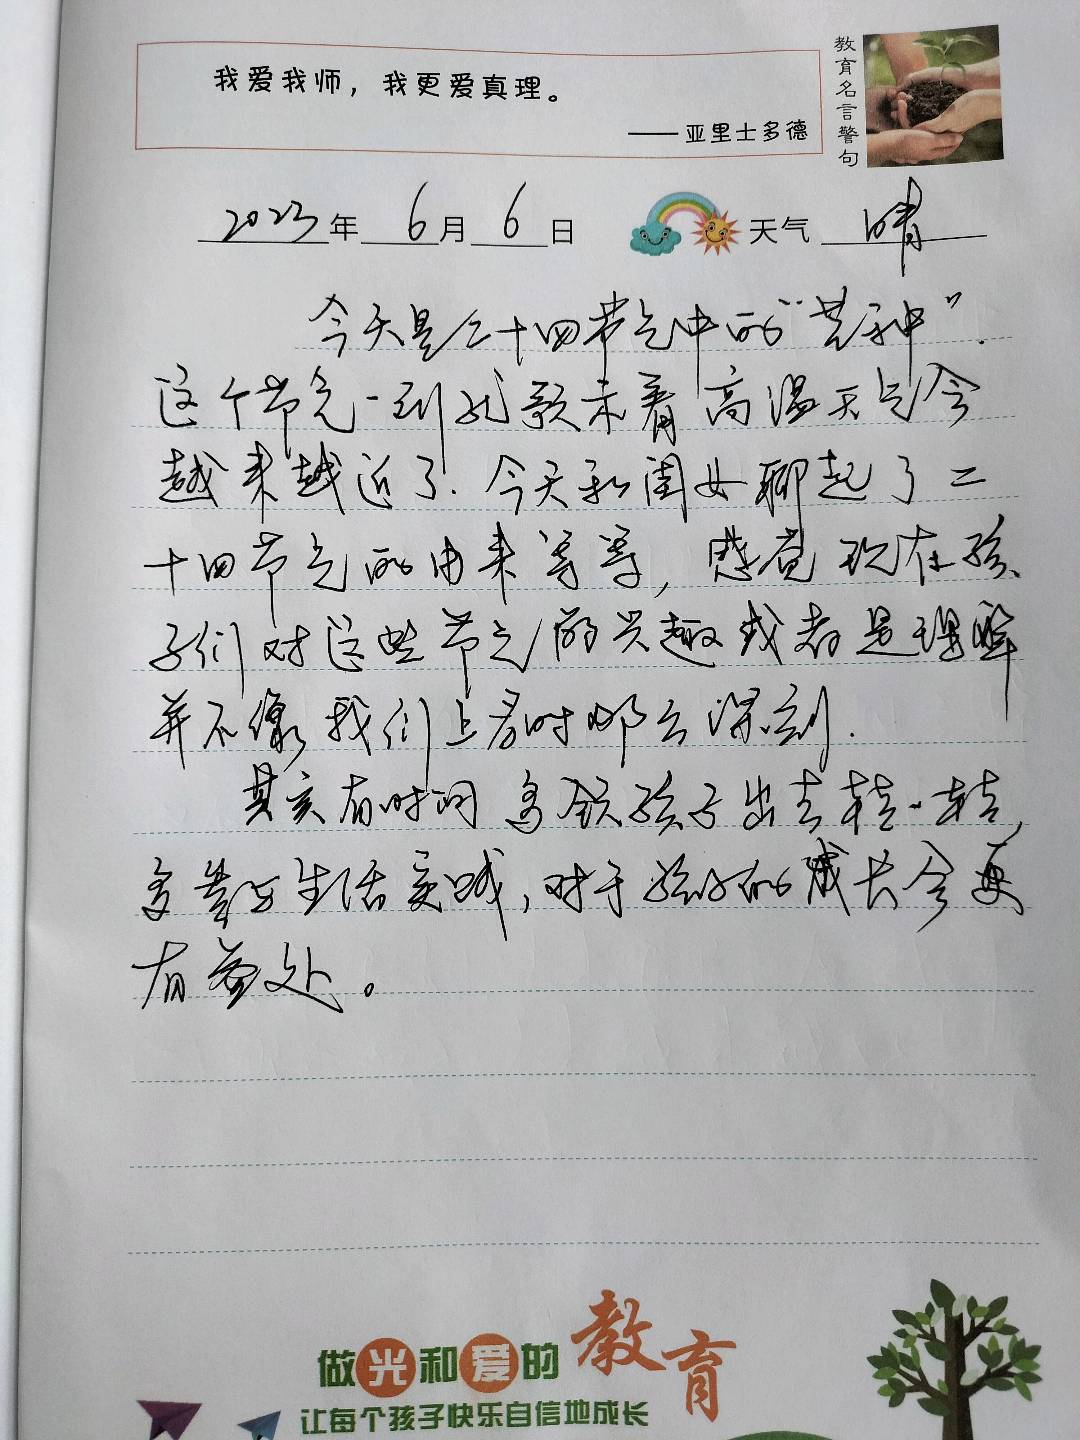 我爱我师，我更爱真理。
——亚里士多德
教育名言警句
2023年 6月 6日 天气 晴
今天是二十四节气中的“芒种”.
这个节气一到就预示着高温天气会
越来越近了.今天和闺女聊起了二
十四节气的由来等等，感觉现在孩
子们对这些节气的兴趣或者是理解
并不像我们上学时那么深刻.
其实有时间多领孩子出去转一转，
多参与生活实践，对于孩子的成长会更
有益处。
做光和爱的教育
让每个孩子快乐自信地成长